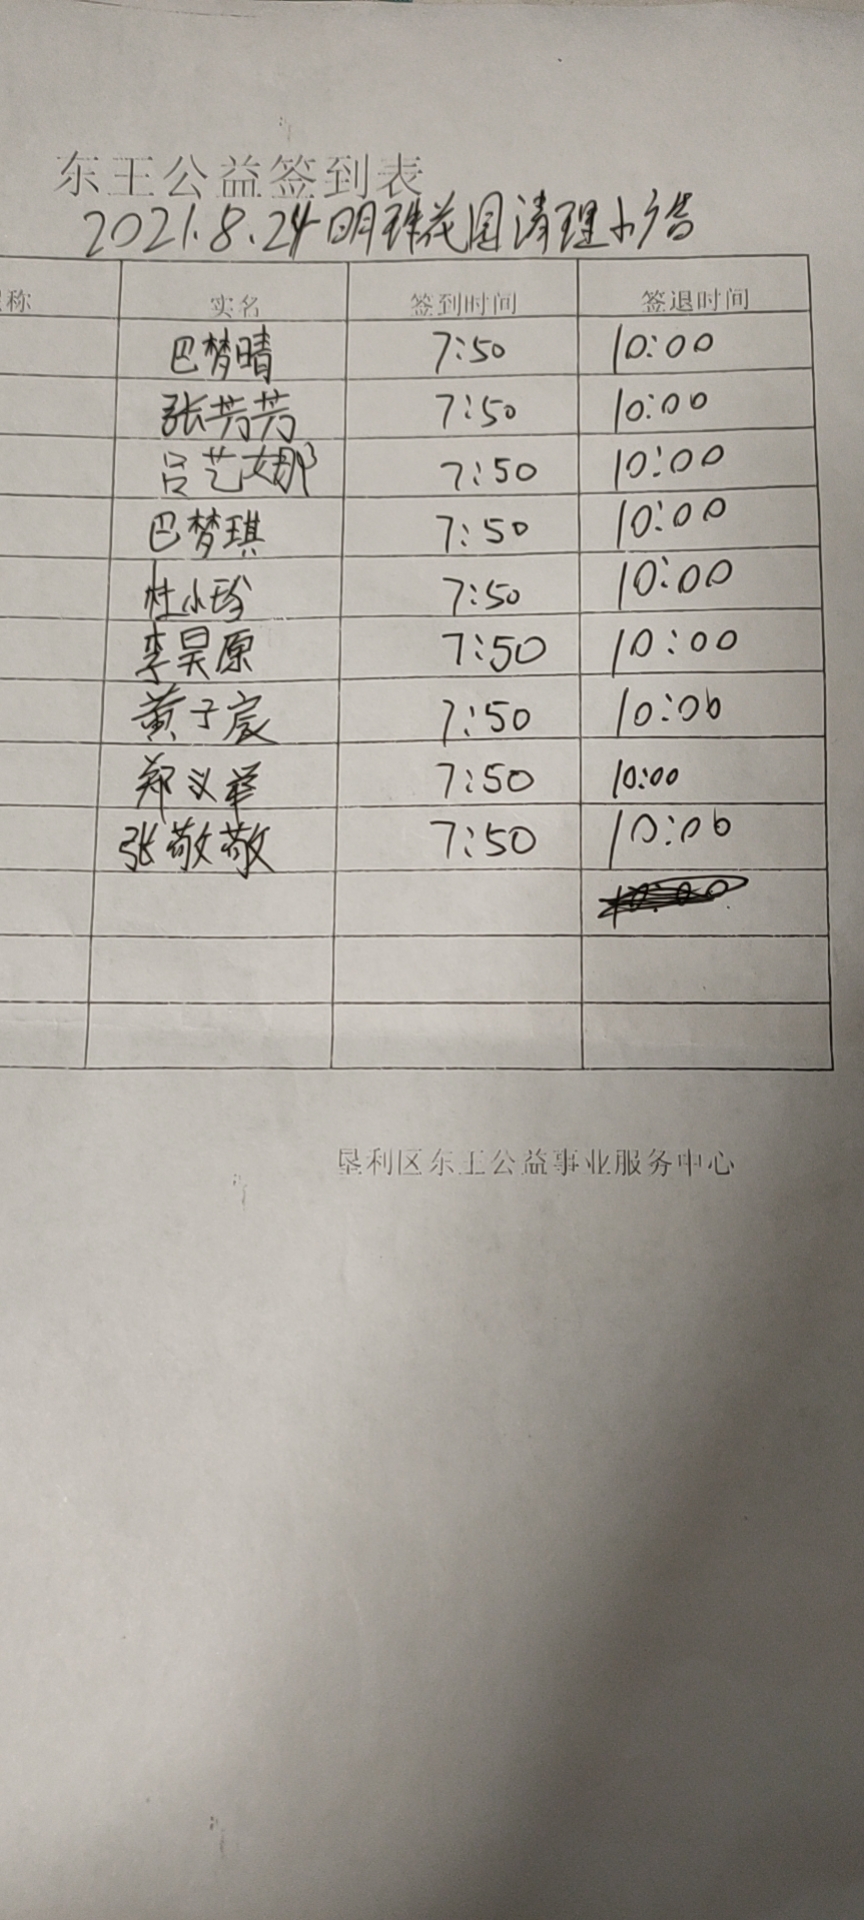 东王公益签到表
2021.8.24明珠花园清理小广告
称 实名 签到时间 签退时间
巴梦晴 7:50 10:00
张芳芳 7:50 10:00
吕艺娜 7:50 10:00
巴梦琪 7:50 10:00
杜小珍 7:50 10:00
李昊原 7:50 10:00
黄子宸 7:50 10:00
郑义举 7:50 10:00
张敬敬 7:50 10:00
垦利区东王公益事业服务中心